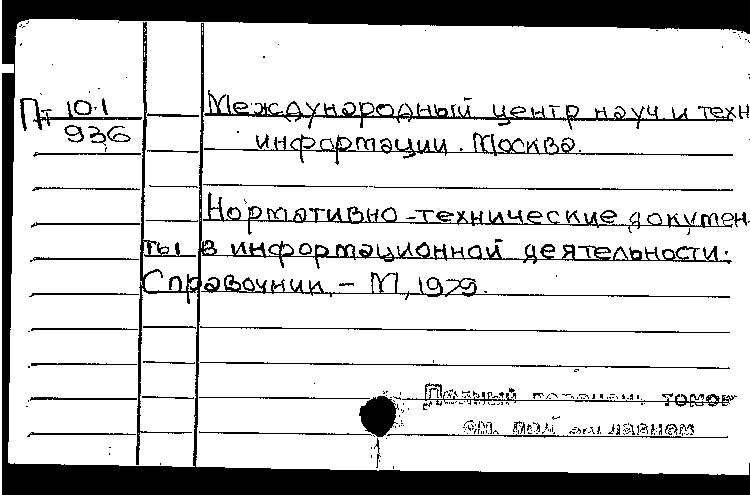 Пт 10.1
936
Международный центр науч и техн
информации. Москва.
Нормативно-технические докумен-
ты в информационной деятельности.
Справочник. – М, 1979.
Полный перечень томов
см. под заглавием